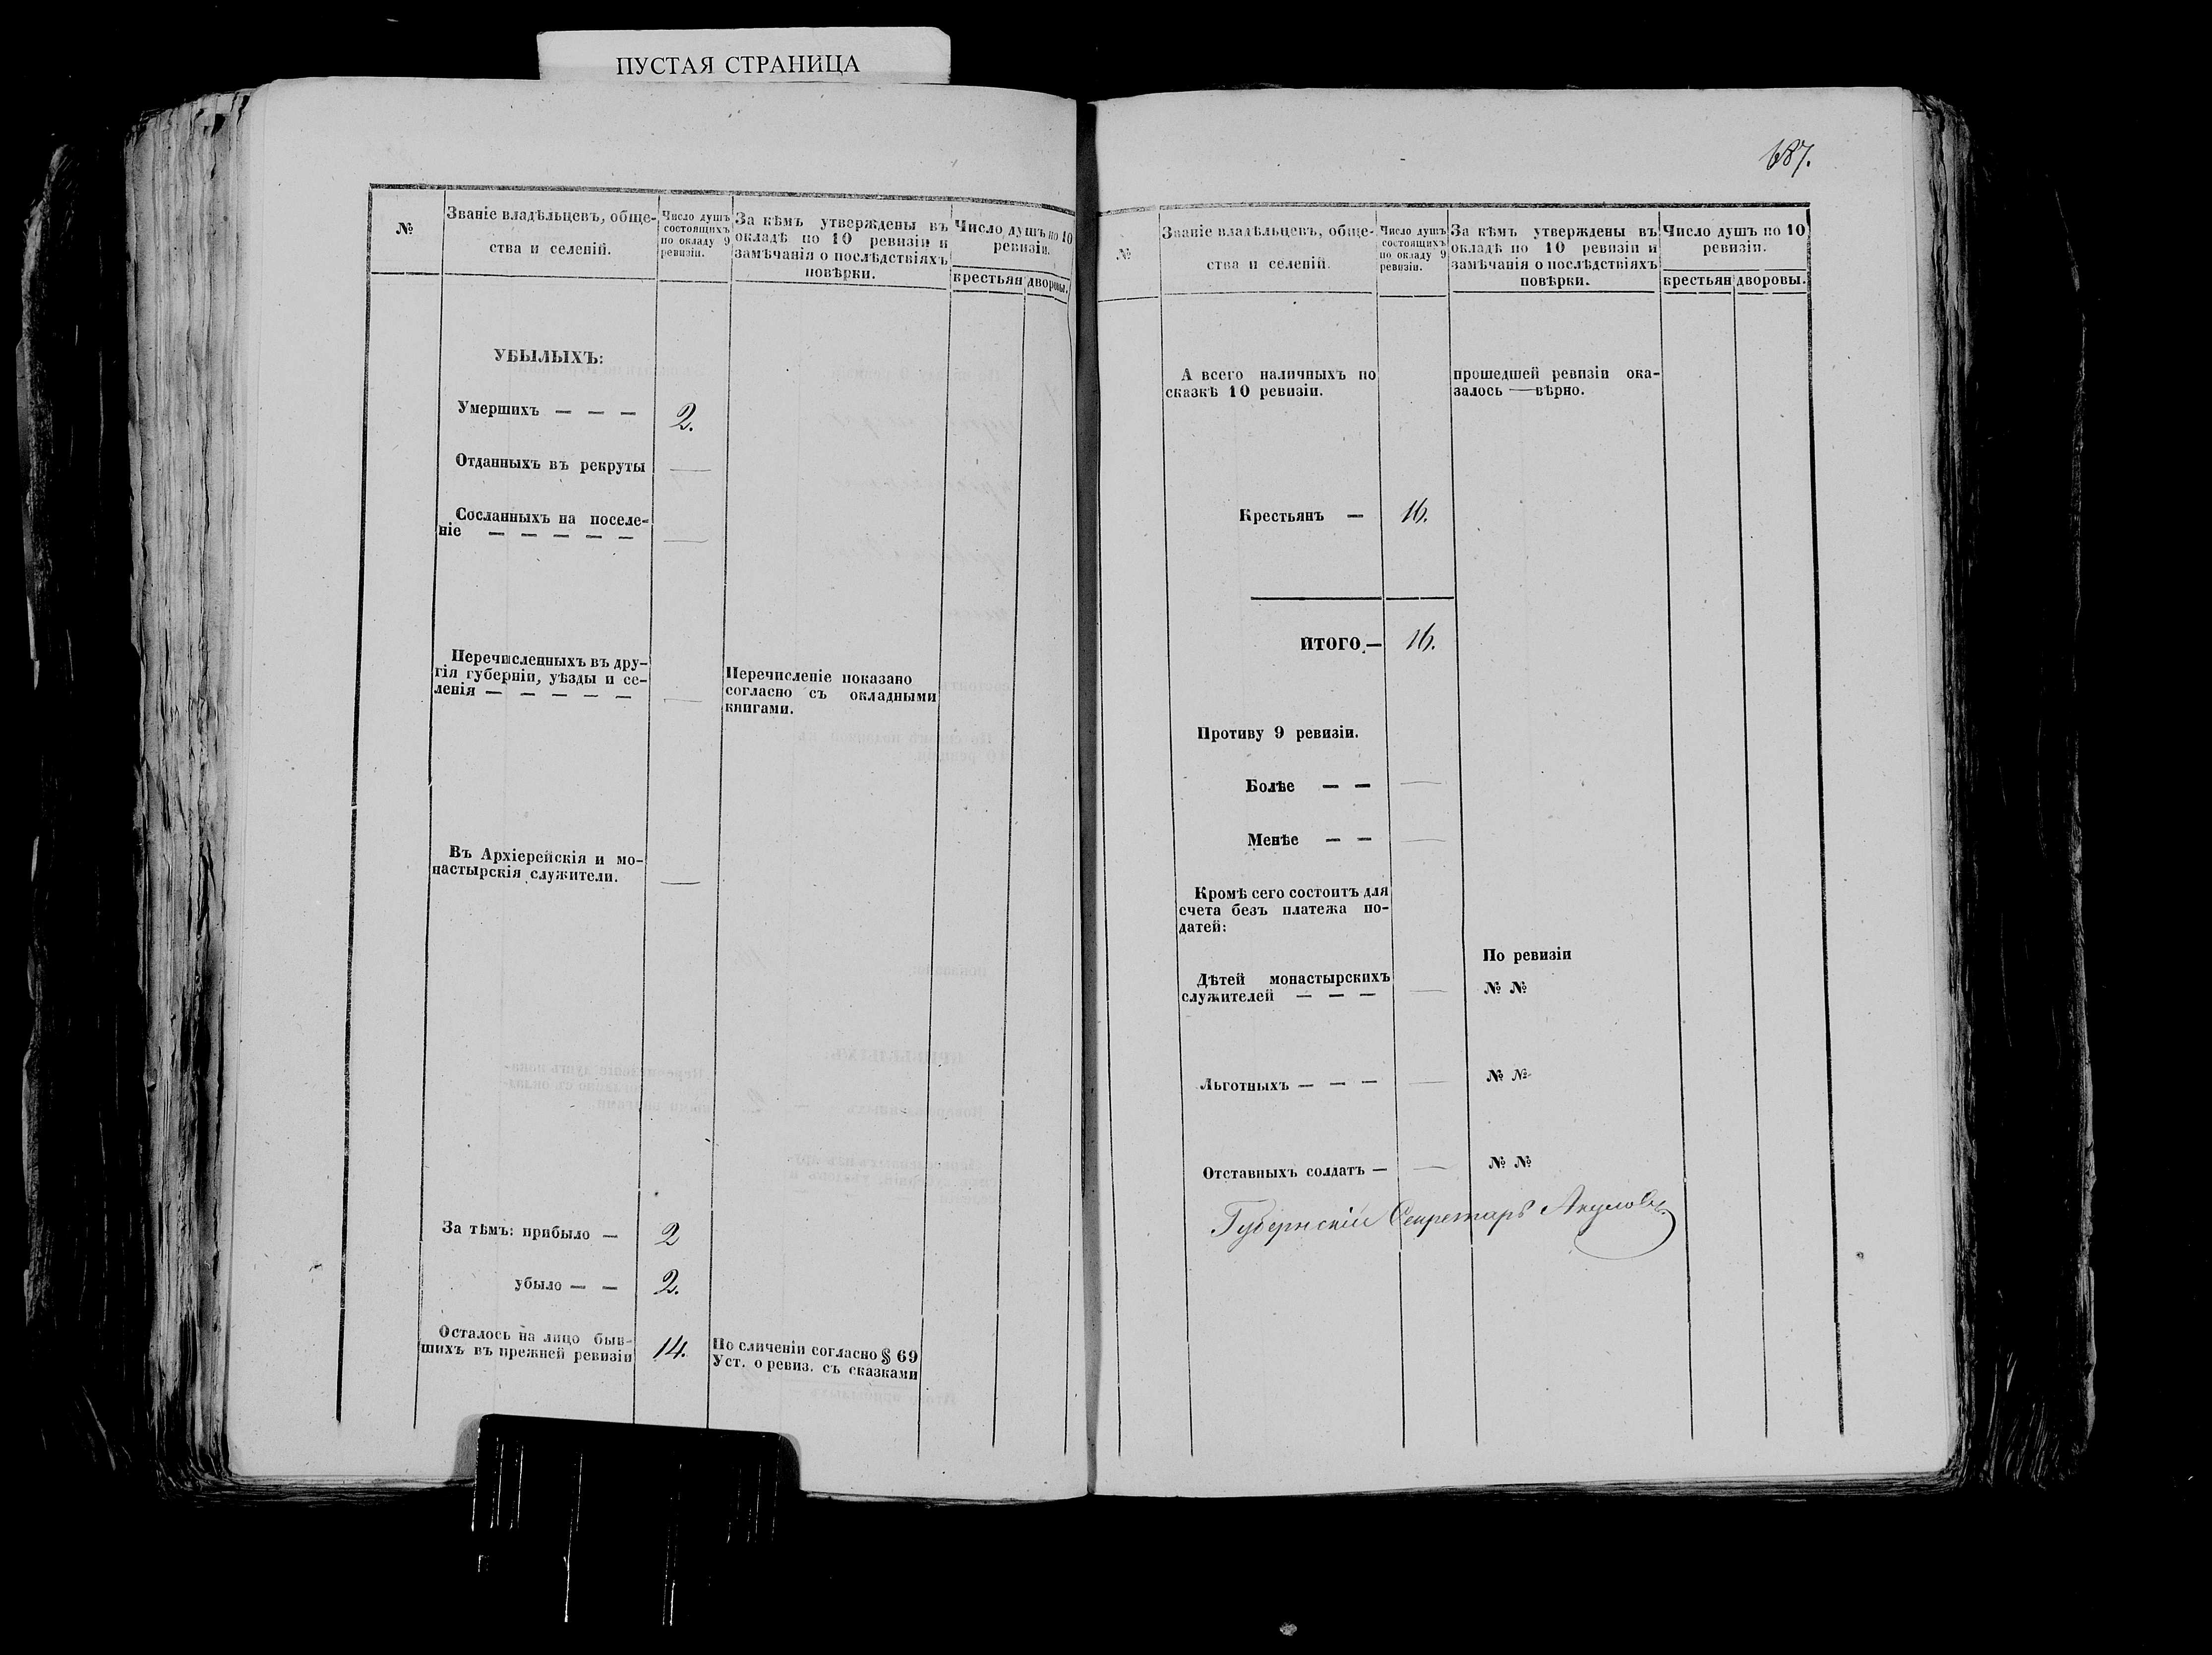 ПУСТАЯ СТРАНИЦА
№
Званіе владѣльцевъ, обще-
ства и селеній.
Число душъ
состоящихъ
по окладу 9
ревизіи.
За кѣмъ утверждены въ
окладѣ по 10 ревизіи и
замѣчанія о послѣдствіяхъ
повѣрки.
Число душъ по 10
ревизіи.
крестьян
дворовы.
УБЫЛЫХЪ:
Умершихъ — — — 2.
Отданныхъ въ рекруты —
Сосланныхъ на поселе-
ніе — — — — — —
Перечисленныхъ въ дру-
гія губерніи, уѣзды и се-
ленія — — — — — —
Перечисленіе показано
согласно съ окладными
книгами.
Въ Архіерейскія и мо-
настырскія служители. —
За тѣмъ: прибыло — 2
убыло — — 2.
Осталось на лицо быв-
шихъ въ прежней ревизіи 14.
По сличеніи согласно § 69
Уст. о ревиз. съ сказками
687.
№
Званіе владѣльцевъ, обще-
ства и селеній.
Число душъ
состоящихъ
по окладу 9
ревизіи.
За кѣмъ утверждены въ
окладѣ по 10 ревизіи и
замѣчанія о послѣдствіяхъ
повѣрки.
Число душъ по 10
ревизіи.
крестьян
дворовы.
А всего наличныхъ по
сказкѣ 10 ревизіи.
прошедшей ревизіи ока-
залось — вѣрно.
Крестьянъ — 16.
ИТОГО — 16.
Противу 9 ревизіи.
Болѣе — — —
Менѣе — — —
Кромѣ сего состоитъ для
счета безъ платежа по-
датей:
По ревизіи
Дѣтей монастырскихъ
служителей — — — — № №
Льготныхъ — — — — № №
Отставныхъ солдатъ — — № №
Губернскій Секретарь Акуловъ